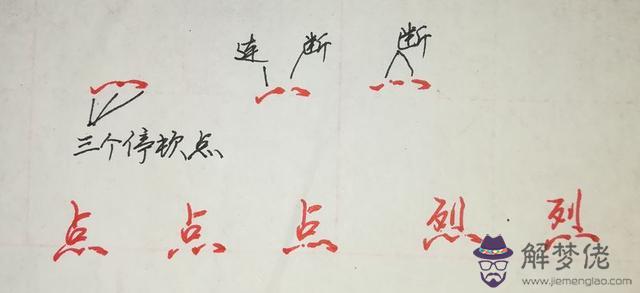 连 断 断
三个停顿点
点 点 点 烈 烈
解梦佬
www.jiemenglao.com